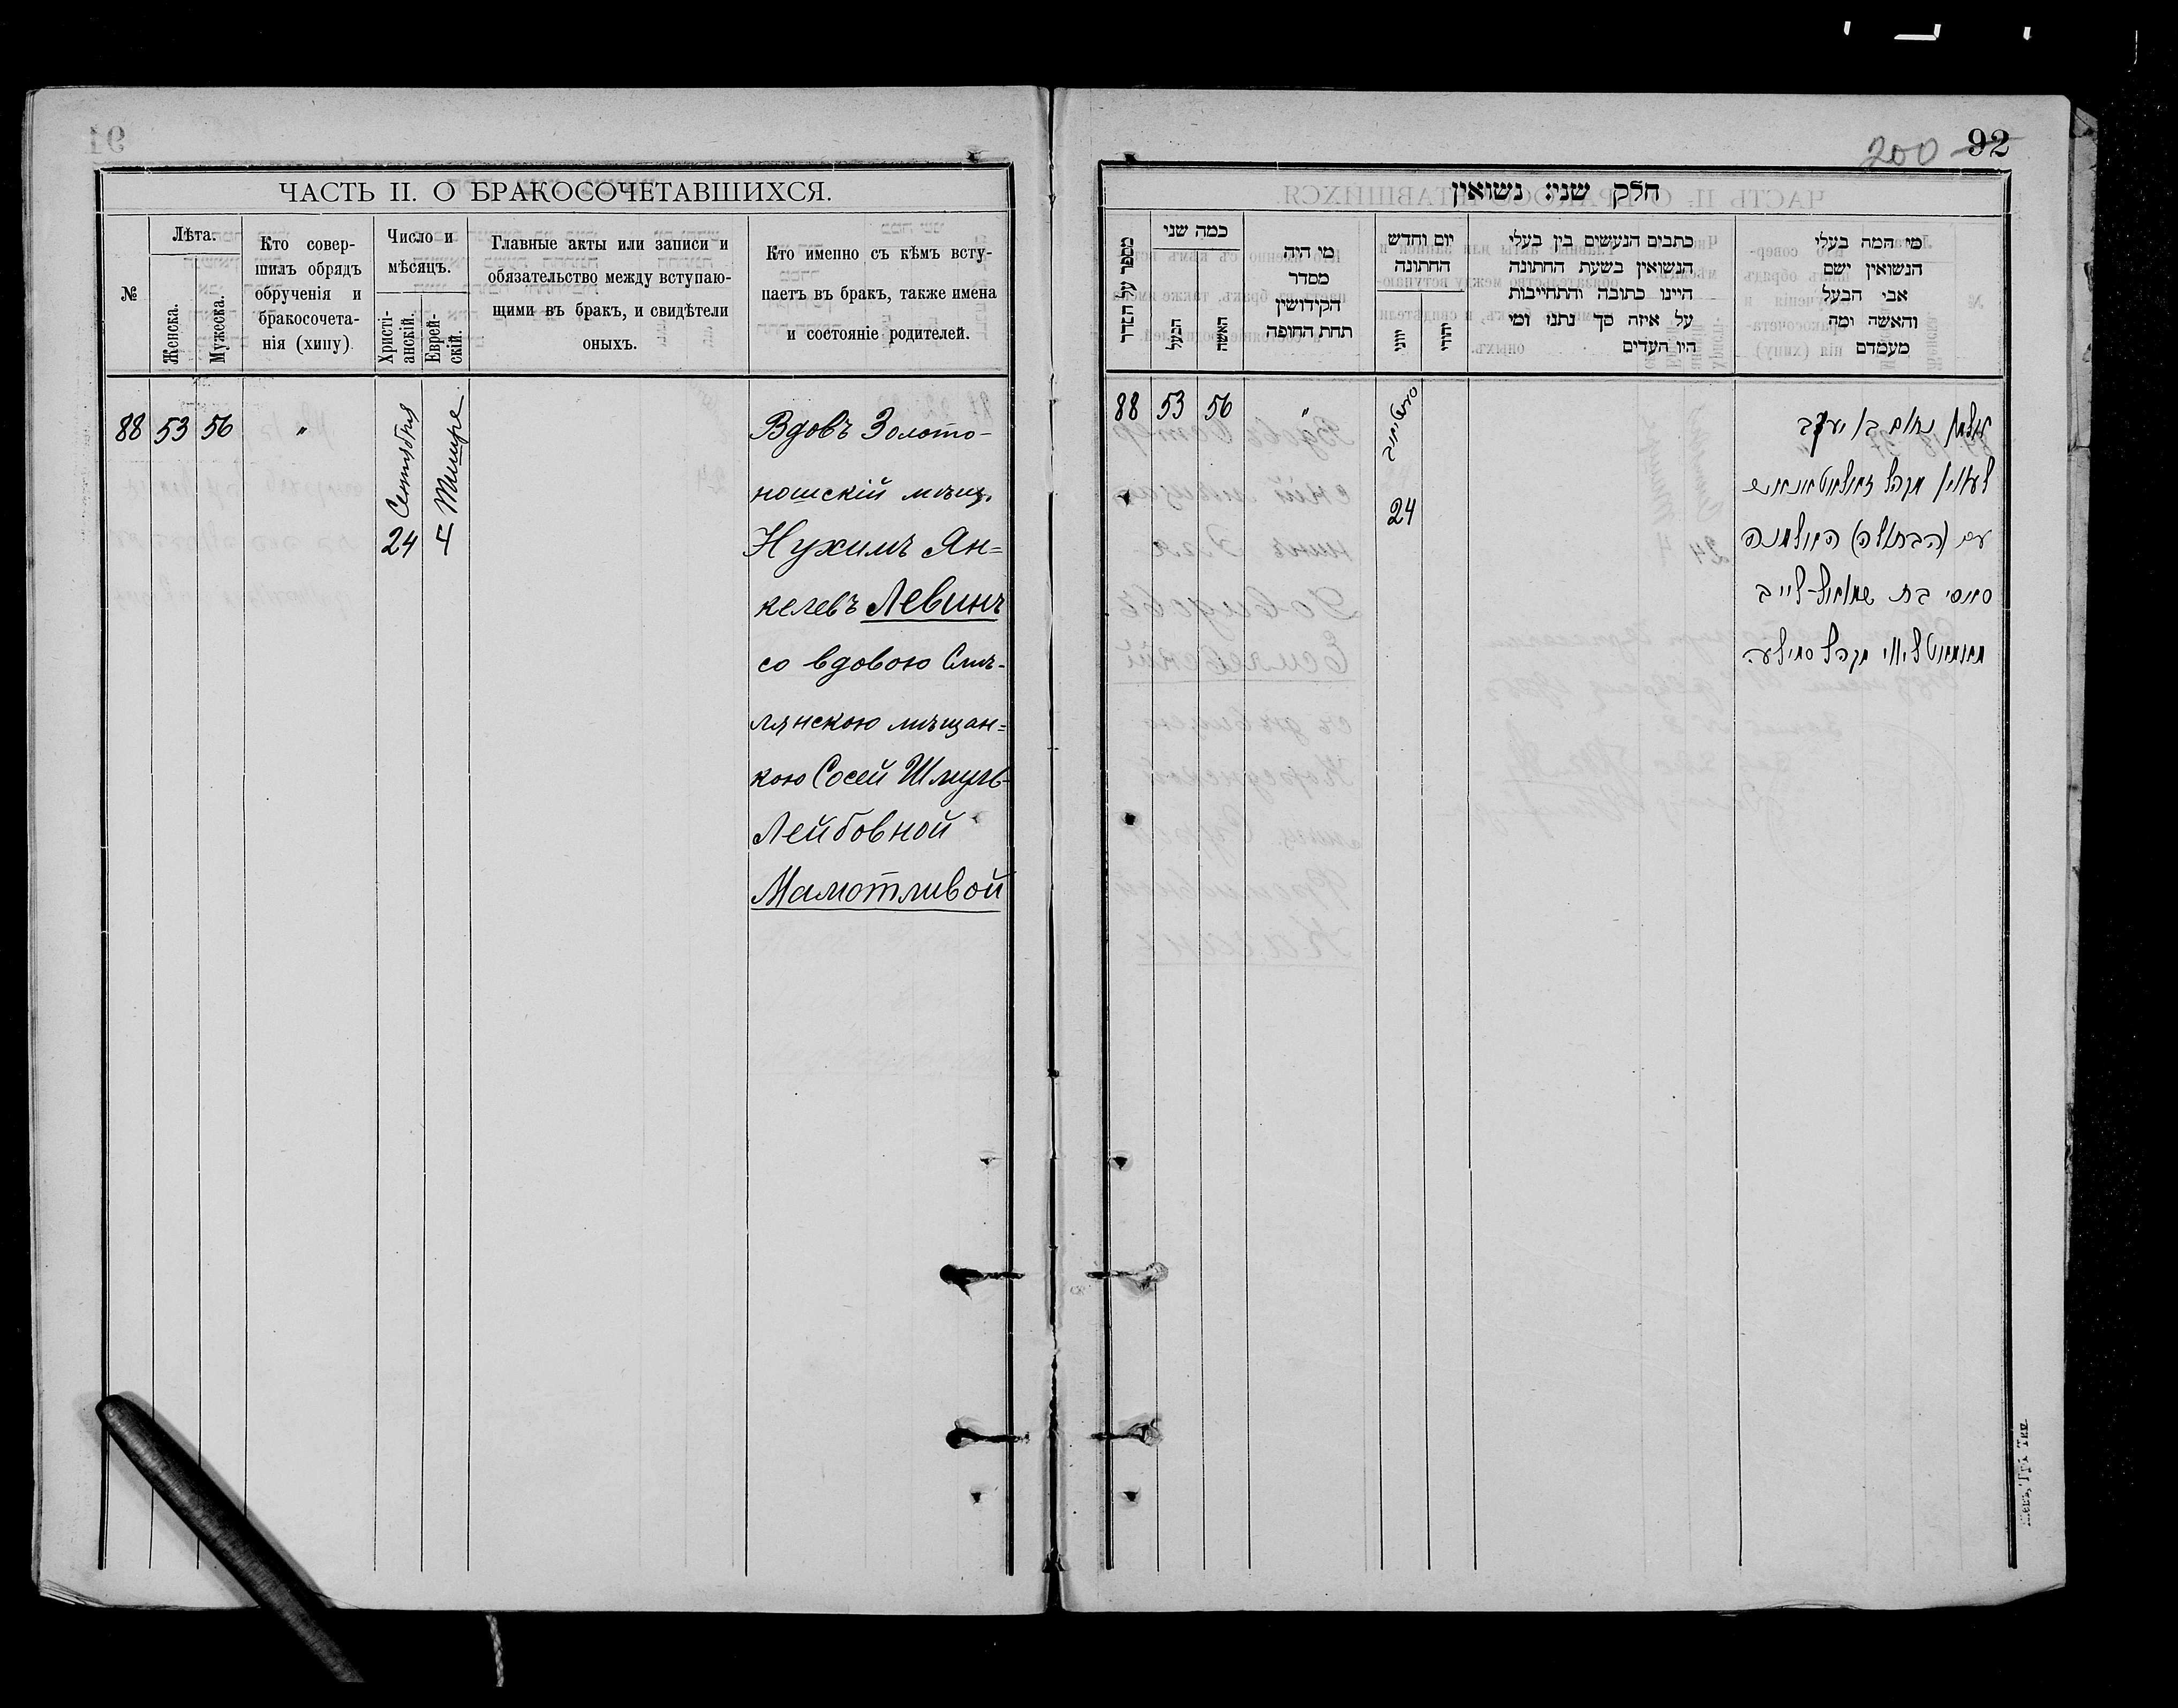 ЧАСТЬ II. О БРАКОСОЧЕТАВШИХСЯ.
№
Лѣта.
Женска.
Мужеска.
Кто совер-
шилъ обрядъ
обрученія и
бракосочета-
нія (хипу)
Число и
мѣсяцъ.
Христі-
анскій.
Еврей-
скій.
Главные акты или записи и
обязательство между вступаю-
щими въ бракъ, и свидѣтели
оныхъ.
Кто именно съ кѣмъ всту-
паетъ въ бракъ, также имена
и состояніе родителей.
88 53 56 "
Сентября
24
Тишре
4
Вдовъ Золото-
ношскій мѣщ.
Нухимъ Ян=
келевъ Левинъ
со вдовою Смѣ-
лянскою мѣщан=
кою Сосей Шмуль-
Лейбовной
Мамотливой
200 92
חלק שני: נשואין
מספר על הסדר
כמה שני
הבעל
האשה
מי היה
מסדר
הקידושין
תחת החופה
יום וחדש
החתונה
יווני
יהודי
כתבים הנעשים בין בעלי
הנשואין בשעת החתונה
היינו כתובה והתחייבות
על איזה סך נתנו ומי
היו העדים
מי המה בעלי
הנשואין ושם
אבי הבעל
והאשה ומה
מעמדם
88 53 56 "
24
אלמן נאום בן יעקב
לעווין מקהל זאלאטאנאש
עם (הבתולה) האלמנה
סאסי בת שמואל-לייב
מאמאטליווי מקהל סמילע